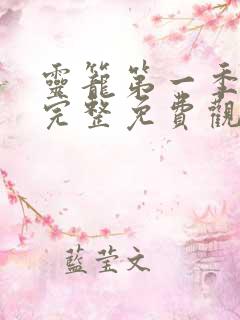 靈籠第一季
完整免費觀
藍瑩文